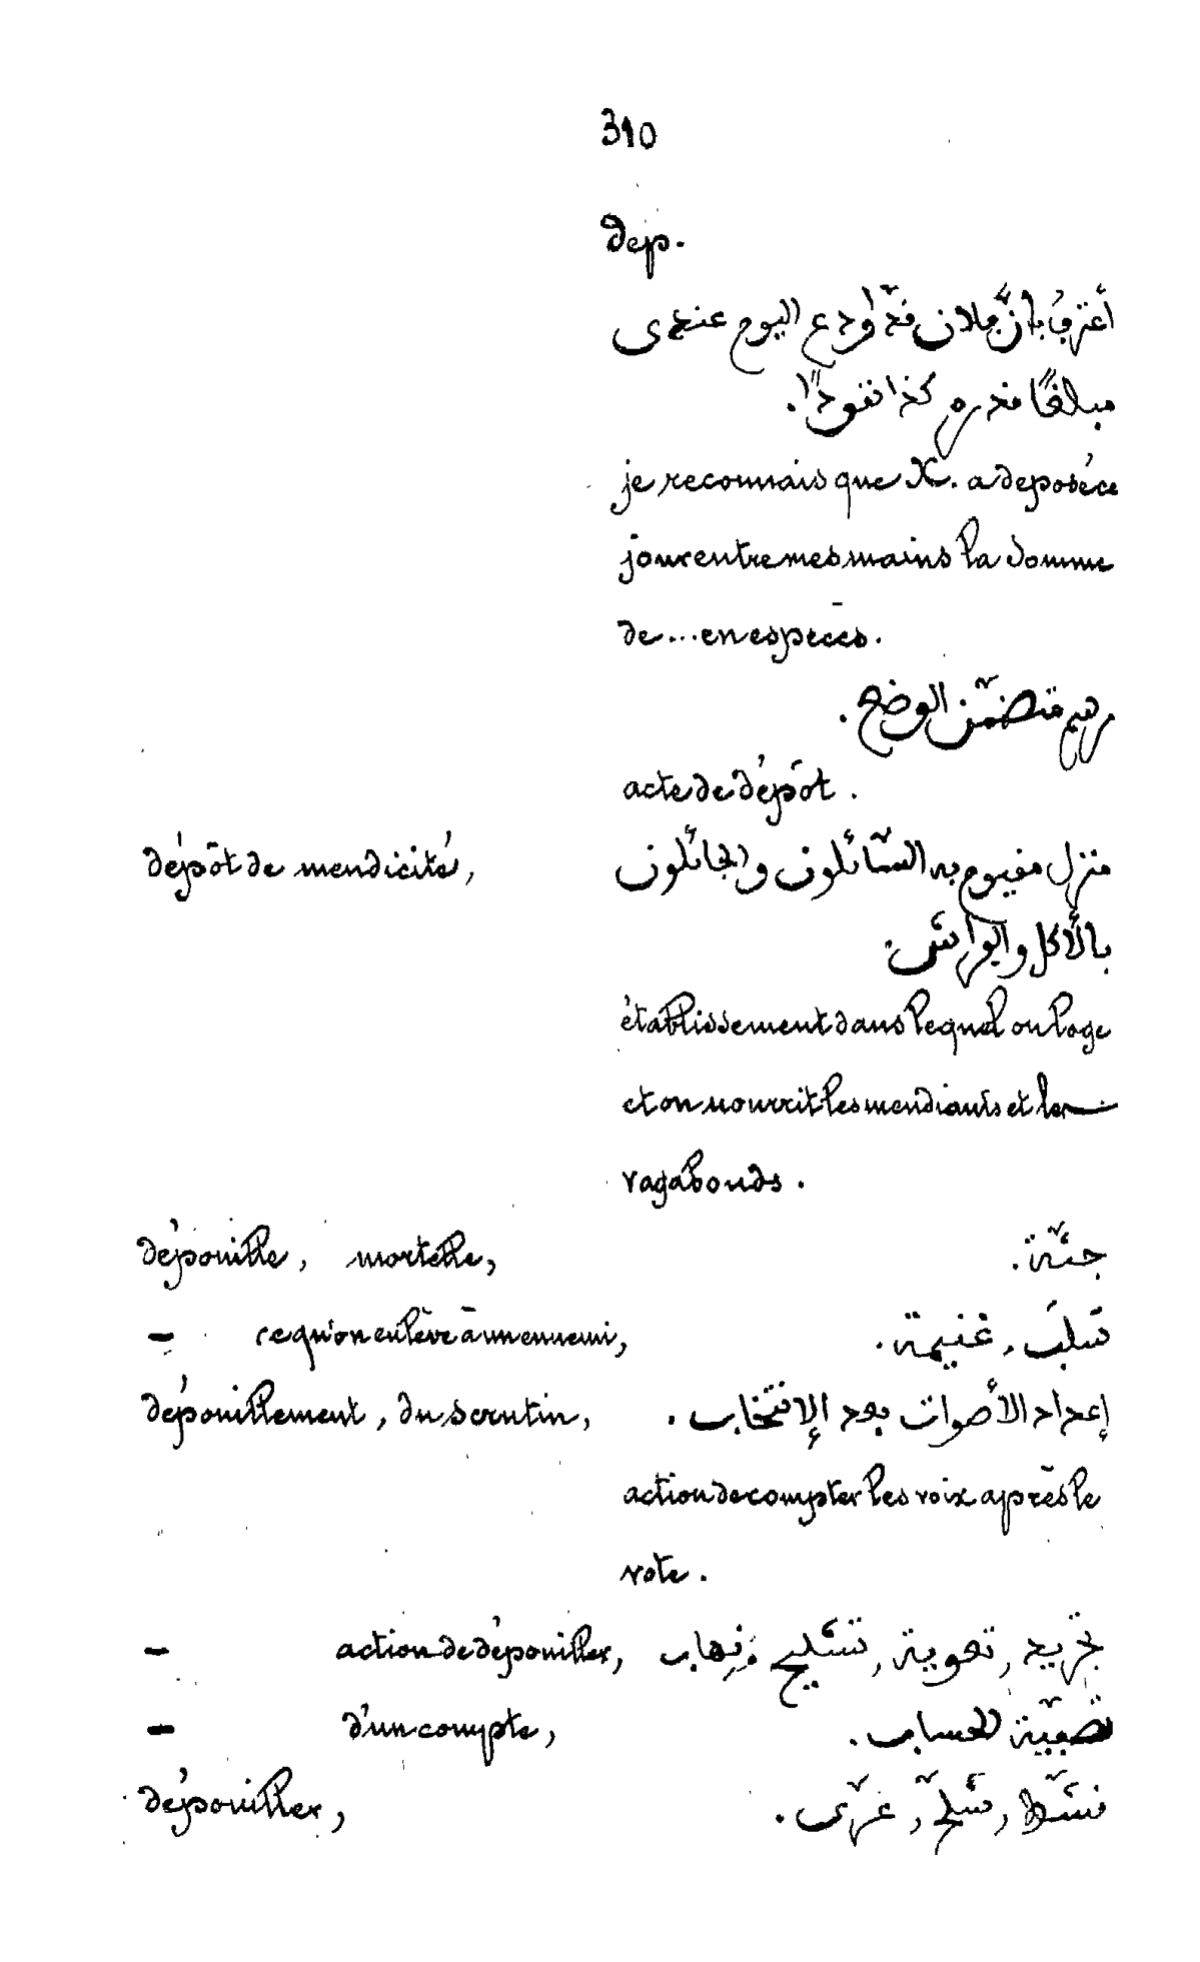 310
dep.
أعترفُ بأنّ فلان قد أودع اليوم عندى
مبلغًا قدره كذا نقودًا.
je reconnais que X. a déposé ce
jour entre mes mains la somme
de ... en espèces.
متضمّن الوضع.
acte de dépôt.
dépôt de mendicité, منزل مقيوم به السّائلون والجائلون
بالأكل والفراش.
établissement dans lequel on loge
et on nourrit les mendiants et les
vagabonds.
dépouille, mortelle, جثّة.
— ce qu'on enlève à un ennemi, سَلَب, غنيمة.
dépouillement, du scrutin, إعداد الأصوات بعد الإنتخاب.
action de compter les voix après le
vote.
— action de dépouiller, تجريد, تعرية, تشليح, نهاب
— d'un compte, تصفية الحساب.
dépouiller, نشّط, شلّح, عرّى.